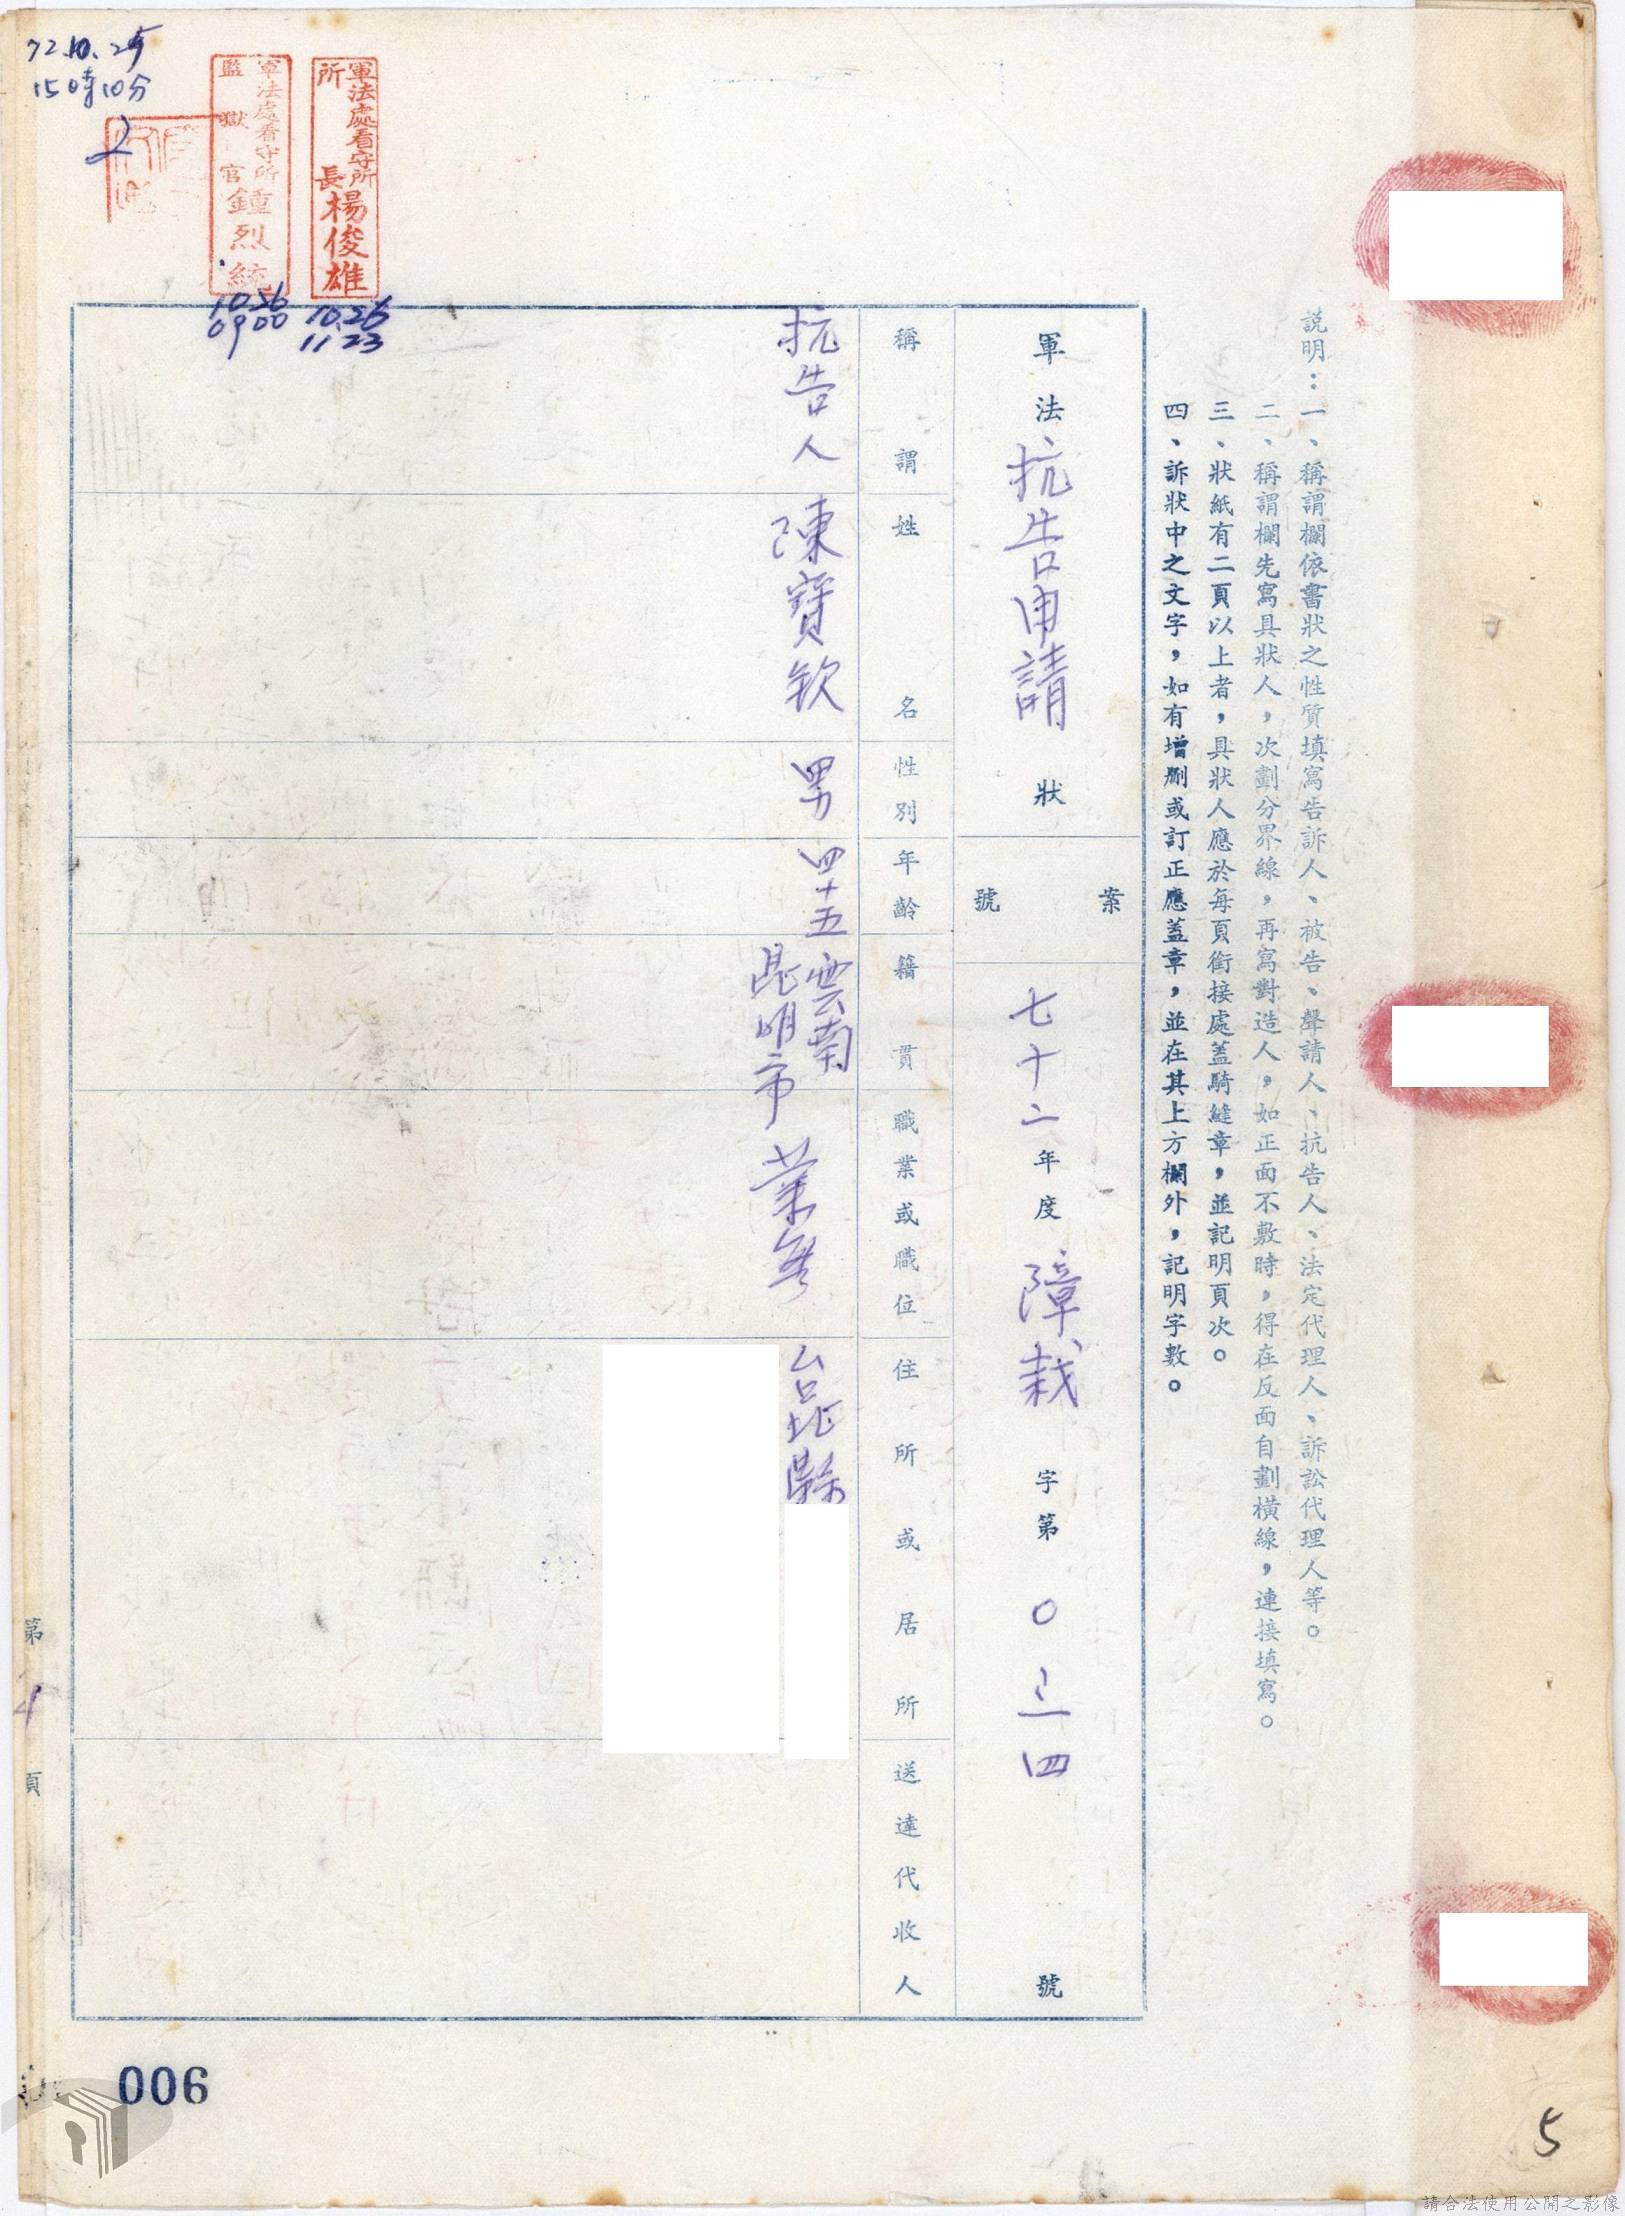 說明：一、稱謂欄依書狀之性質填寫告訴人、被告、聲請人、抗告人、法定代理人、訴訟代理人等。
二、稱謂欄先寫具狀人，次劃分界線，再寫對造人，如正面不敷時，得在反面自劃橫線，連接填寫。
三、狀紙有二頁以上者，具狀人應於每頁銜接處蓋騎縫章，並記明頁次。
四、訴狀中之文字，如有增刪或訂正應蓋章，並在其上方欄外，記明字數。
軍法抗告申請狀
案號
七十二年度障裁字第〇三四號
稱謂
姓名
性別
年齡
籍貫
職業或職位
住所或居所
送達代收人
抗告人
陳寶欽
男
四十五
雲南
昆明市
業無
台北縣
軍法處看守所
所長楊俊雄
10.26
11 23
軍法處看守所
監獄官鍾烈統
10.26
09 00
72.10.25
15時10分
第 頁
006
5
請合法使用公開之影像